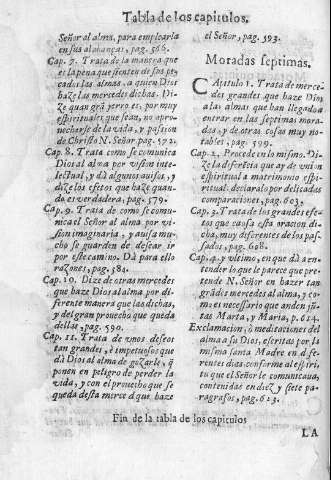 Tabla de los capitulos.
Señor al alma, para emplearla
en sus alabanças, pag. 566.
Cap. 7. Trata de la manera que
es la pena que sienten de sus pe-
cados las almas, a quien Dios
haze las mercedes dichas. Di-
ze quan grã yerro es, por muy
espirituales que sean, no apro-
uecharse de la vida, y passion
de Christo N. Señor pag. 572.
Cap. 8. Trata como se comunica
Dios al alma por vision inte-
lectual, y dà algunos auisos, y
dize los efetos que haze quan-
do es verdadera, pag. 579.
Cap. 9. Trata de como se comu-
nica el Señor al alma por vi-
sion imaginaria, y auisa mu-
cho se guarden de dessear ir
por este camino. Dà para ello
razones, pag. 584.
Cap. 10. Dize de otras mercedes
que haze Dios al alma por di-
ferente manera que las dichas,
y del gran prouecho que queda
dellas, pag. 590.
Cap. 11. Trata de vnos deseos
tan grandes, è impetuosos que
dà Dios al alma de gozarle, q̃
ponen en peligro de perder la
vida, y con el prouecho que se
queda desta merced que haze
el Señor, pag. 593.
Moradas septimas.
CApitulo 1. Trata de merce-
des grandes que haze Dios
a las almas que han llegado a
entrar en las septimas mora-
das, y de otras cosas muy no-
tables, pag. 599.
Cap. 2. Procede en lo mismo. Di-
ze la diferẽcia que ay de vniõ
espiritual a matrimonio espi-
ritual. declaralo por delicadas
comparaciones, pag. 603.
Cap. 3. Trata de los grandes efe-
tos que causa esta oracion di-
cha, muy diferentes de los pas-
sados, pag. 608.
Cap. 4. y vltimo, en que dà a en-
tender lo que le parece que pre-
tende N. Señor en hazer tan
grãdes mercedes al alma, y co-
mo es necessario que anden jũ-
tas Marta, y Maria, p. 614.
Exclamacion, ò meditaciones del
alma a su Dios, escritas por la
misma santa Madre en dife-
rentes dias conforme al espiri-
tu que el Señor le comunicaua,
contenidas en diez y siete pa-
ragrafos, pag. 623.
Fin de la tabla de los capitulos
LA